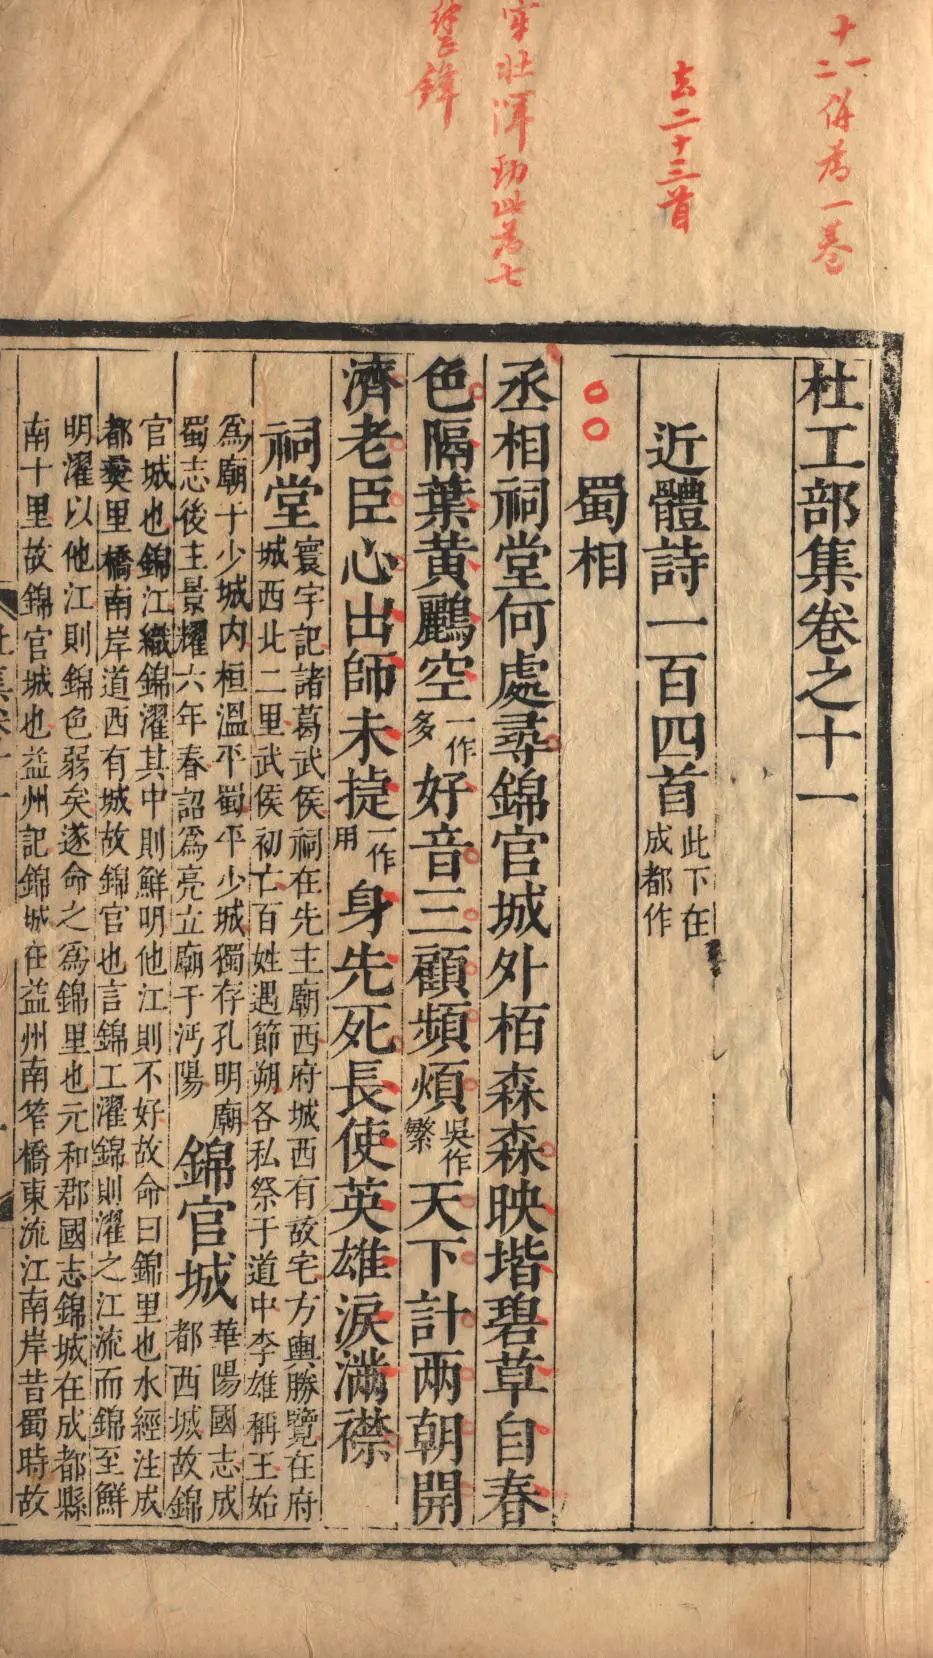 十一
二併為一卷
去二十三首
牢壯渾勁此為七
律鋒
杜工部集卷之十一
近體詩一百四首
此下在
成都作
蜀相
丞相祠堂何處尋錦官城外栢森森映堦碧草自春
色隔葉黃鸝空一作多好音三顧頻煩吳作繁天下計兩朝開
濟老臣心出師未捷一作用身先死長使英雄淚滿襟
祠堂
寰宇記諸葛武侯祠在先主廟西府城西有故宅方輿勝覽在府
城西北二里武侯初亡百姓遇節朔各私祭于道中李雄稱王始
為廟于少城內桓溫平蜀平少城獨存孔明廟
蜀志後主景耀六年春詔為亮立廟于沔陽
錦官城
華陽國志成
都西城故錦
官城也錦江織錦濯其中則鮮明他江則不好故命曰錦里也水經注成
都夷里橋南岸道西有城故錦官也言錦工濯錦則濯之江流而錦至鮮
明濯以他江則錦色弱矣遂命之為錦里也元和郡國志錦城在成都縣
南十里故錦官城也益州記錦城在益州南笮橋東流江南岸昔蜀時故